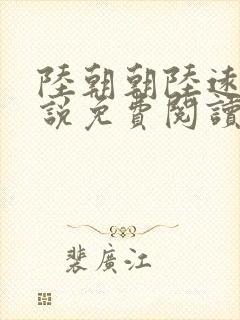 陸朝朝陸遠
説免費閱讀
裴廣江